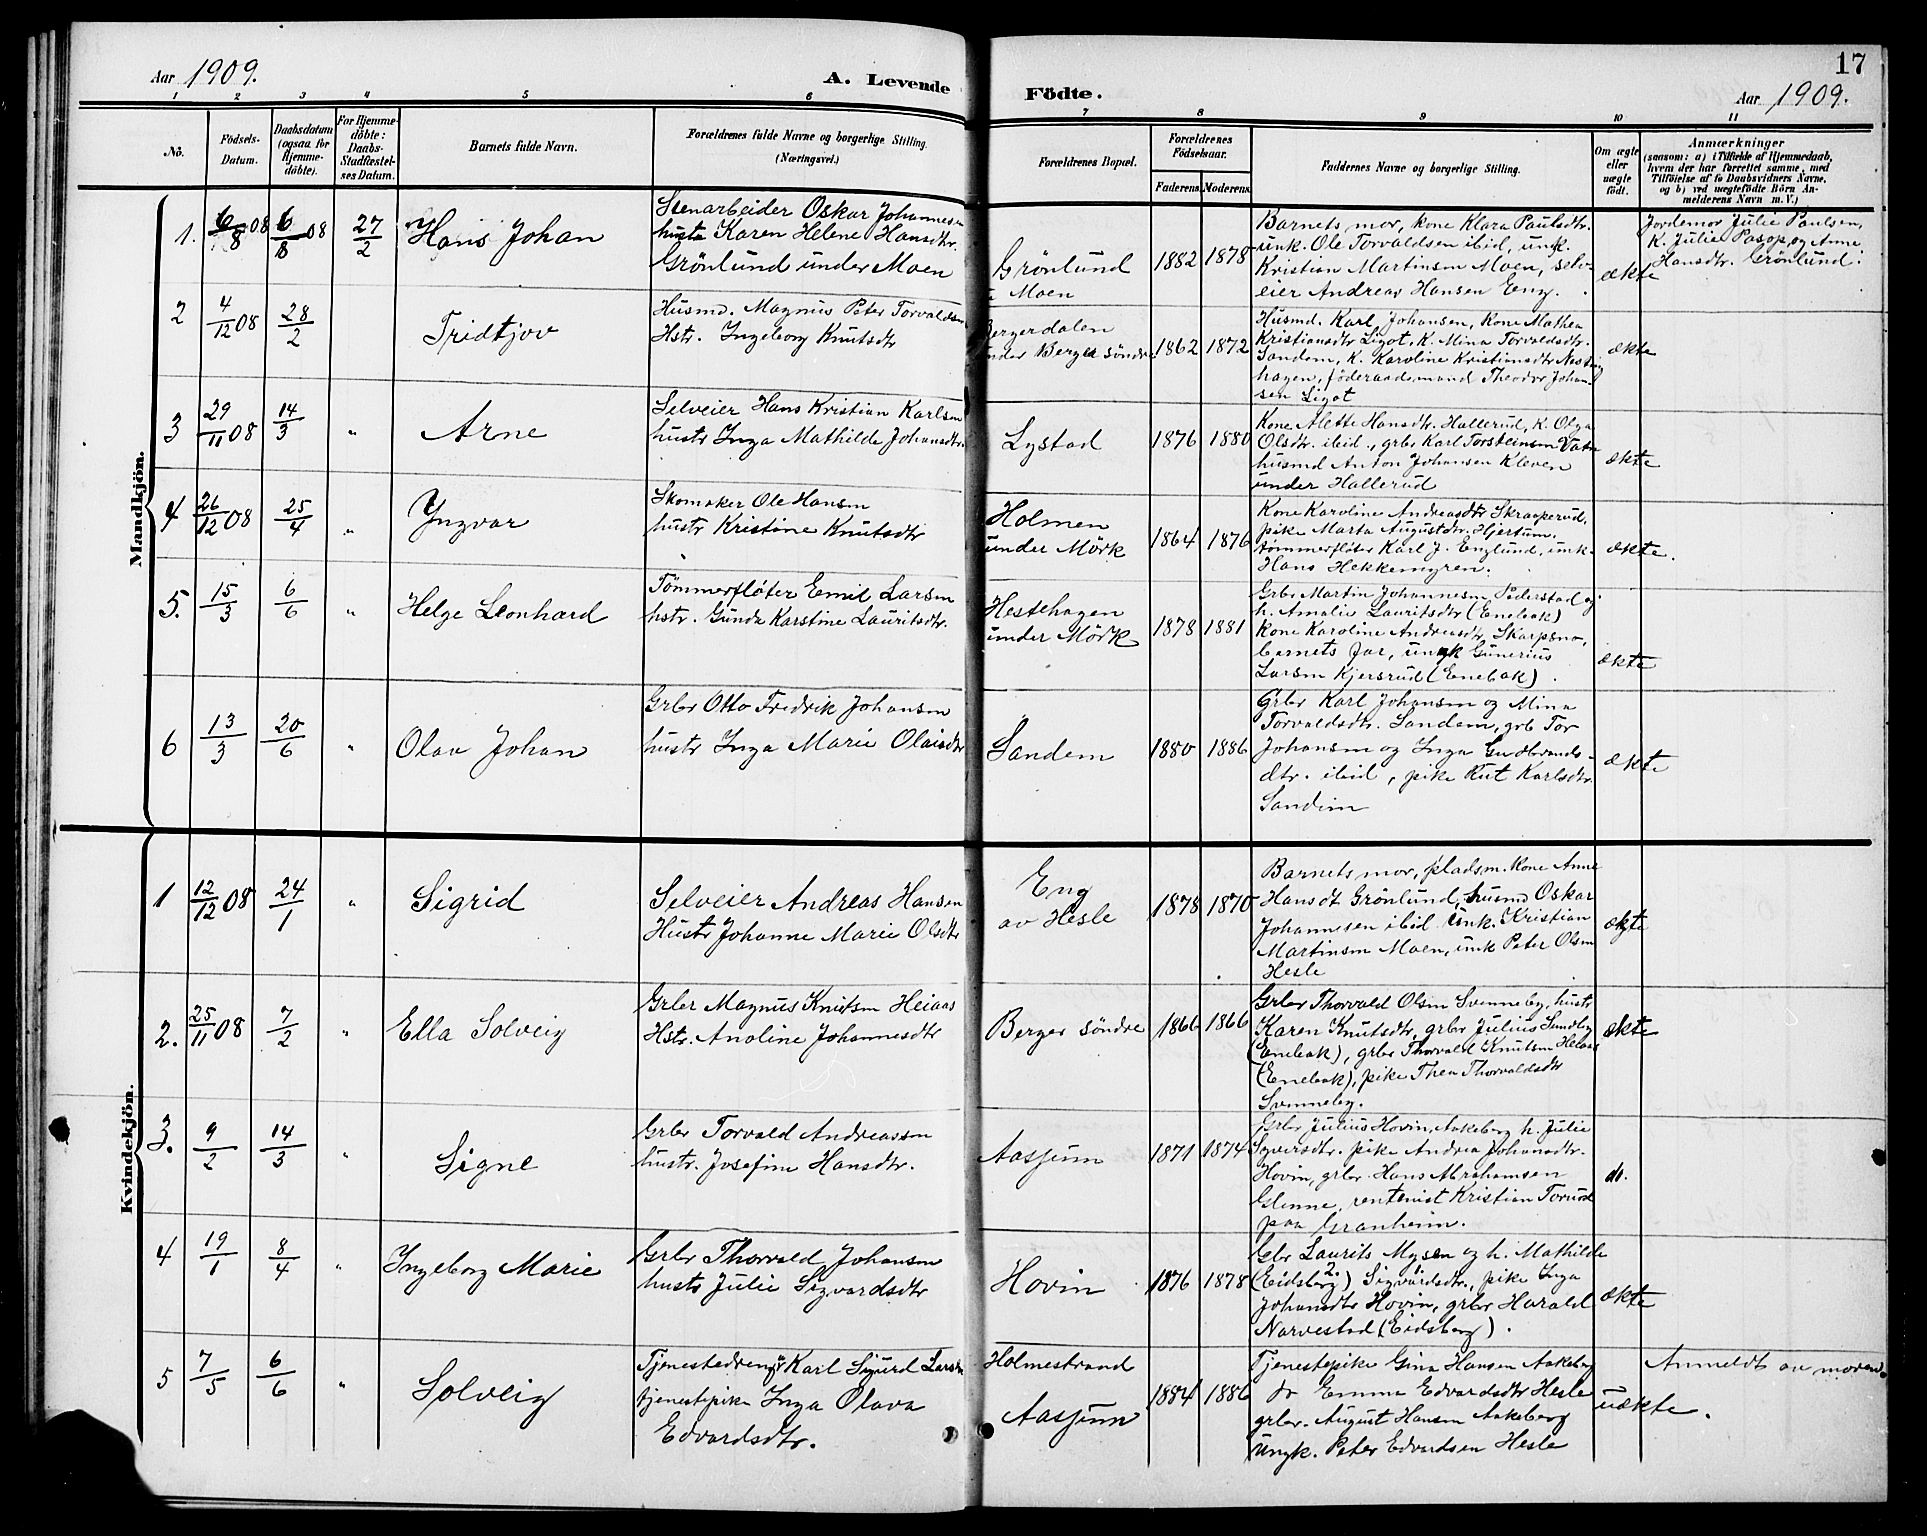 17
Aar 1909.
A. Levende
Födte.
Aar 1909.
1 2 3 4 5 6 7 8 9 10 11
No.
Födsels-
Datum.
Daabsdatum
(ogsaa for
Hjemme-
döbte).
For Hjemme-
döbte:
Daabs-
Stadfæstel-
ses Datum.
Barnets fulde Navn.
Forældrenes fulde Navne og borgerlige Stilling.
(Næringsvei.)
Forældrenes Bopæl.
Forældrenes
Födselsaar.
Faderens.
Moderens.
Faddernes Navne og borgerlige Stilling.
Om ægte
eller
uægte
födt.
Anmærkninger
(saasom: a) i Tilfælde af Hjemmedaab,
hvem der har forrettet samme, med
Tilföielse af to Daabsvidners Navne,
og b) ved uægtefödte Börn An-
melderens Navn m. V.)
Mandkjön.
1. 6/8 08 6/8 08 27/2
Hans Johan
Stenarbeider Oskar Johannesen
hustr Karen Helene Hansdtr.
Grönlund under Moen
Grönlund
Moen
1882 1878
Barnets mor, kone Klara Paulsdtr.
unk. Ole Torvaldsen ibid, ungk.
Kristian Martinsen Moen, selv-
eier Andreas Hansen Eng.
ækte
Jordemor Julie Paulsen,
K. Julie Pasop, og Anne
Hansdtr. Grönlund.
2 4/12 08 28/2
Fridtjov
Husmd. Magnus Peter Torvaldsen
Hstr. Ingeborg Knutsdtr
Bergerdalen
under Berger söndre
1862 1872
Husmd. Karl Johansen, kone Mathea
Kristiansdtr Ligot, K. Mina Torvaldsdtr.
Sandem, K. Karoline Kristiansdtr
hagen, föderaadsmand Theodor Johan-
sen Ligot
ækte
3 29/11 08 14/3 "
Arne
Selveier Hans Kristian Karlsen
hustr Inga Mathilde Johansdtr.
Lystad
1876 1880
Kone Alette Hansdtr. Hallerud, K. Olga
Olsdtr. ibid., grbr Karl Torsteinsen Vatn
husmd Anton Johansen Kleven
under Hallerud
ækte
4 26/12 08 25/4 "
Yngvar
Skomaker Ole Hansen
hustr Kristine Knutsdtr
Holmen
under Mörk
1864 1876
Kone Karoline Andreasdtr Skraaperud,
pike Marta Augustdtr. Hjertum.
tömmerflöter Karl J. Englund, unk.
Hans Hekkemyren.
ækte.
5. 15/3 6/6 "
Helge Leonhard
Tömmerflöter Emil Larsen
hstr. Gunda Karstine Lauritsdtr.
Hestehagen
under Mörk
1878 1881
Grbr Martin Johannesen Pederstad og
h. Amalie Lauritsdtr (Enebak)
Kone Karoline Andreasdtr Skarpsno,
barnets far, ungk Gunerius
Larsen Kjersrud (Enebak).
ækte
6 13/3 20/6 "
Olav Johan
Grbr Otto Fredrik Johansen
hustr Inga Marie Olaisdtr
Sandem
1880 1886
Grbr Karl Johansen og Mina
Torvaldsdtr. Sandem, grb Tor
Johansen og Inga Gudbrands-
dtr. ibid, pike Rut Karlsdtr.
Sandem
ækte
Kvindekjön.
1 12/12 08 24/1 "
Sigrid
Selveier Andreas Hansen
Hustr Johanne Marie Olsdtr
Eng
av Hesle
1878 1870
Barnets mor, pladsm. kone Anne
Hansdt Grönlund, husmd Oskar
Johannesen ibid Unk. Kristian
Martinsen Moen, unk Peter Olsen
Hesle
ækte
2. 25/11 08 7/2 "
Ella Solveig
Grbr Magnus Knutsen Heiaas
Hstr. Anoline Johannesdtr
Berger söndre
1866 1866
Grbr Thorvald Olsen Svenneby, hustr
Karen Knutsdtr, grbr Julius Sundby
(Enebak), grbr Thorvald Knutsen Heiaas
(Enebak), pike Thea Thorvaldsdtr
Svenneby.
ækte
3. 9/2 14/3 "
Signe
Grbr Torvald Andreassen
hustr. Josefine Hansdtr.
Aasjum
1871 1874
Grbr Julius Hovin, Aakeberg h. Julie
Syversdtr. pike Andrea Johansdtr.
Hovin, grbr. Hans Abrahamsen
Glenne, rentenist Kristian Torud
paa Granheim.
do.
4 19/1 8/4 "
Ingeborg Marie
Grbr Thorvald Johansen
hustr Julie Sigvardsdtr
Hovin
1876 1878
Gbr Laurits Mysen og h. Mathilde
(Eidsberg) 2. Sigvardsdtr. 1., pike Inga
Johansdtr Hovin, grbr Harald
Narvestad (Eidsberg).
ækte
5 7/5 6/6 "
Solveig
Tjenestedreng Karl Sigurd Larsen
tjenestepike Inga Olava
Edvardsdtr.
Holmestrand
Aasjum
1884 1886
Tjenestepike Gina Hansen Aakeberg
do Emma Edvardsdtr Hesle
grbr. August Hansen Aakeberg
Ungk. Peter Edvardsen Hesle
uækte.
Anmeldt av moren.